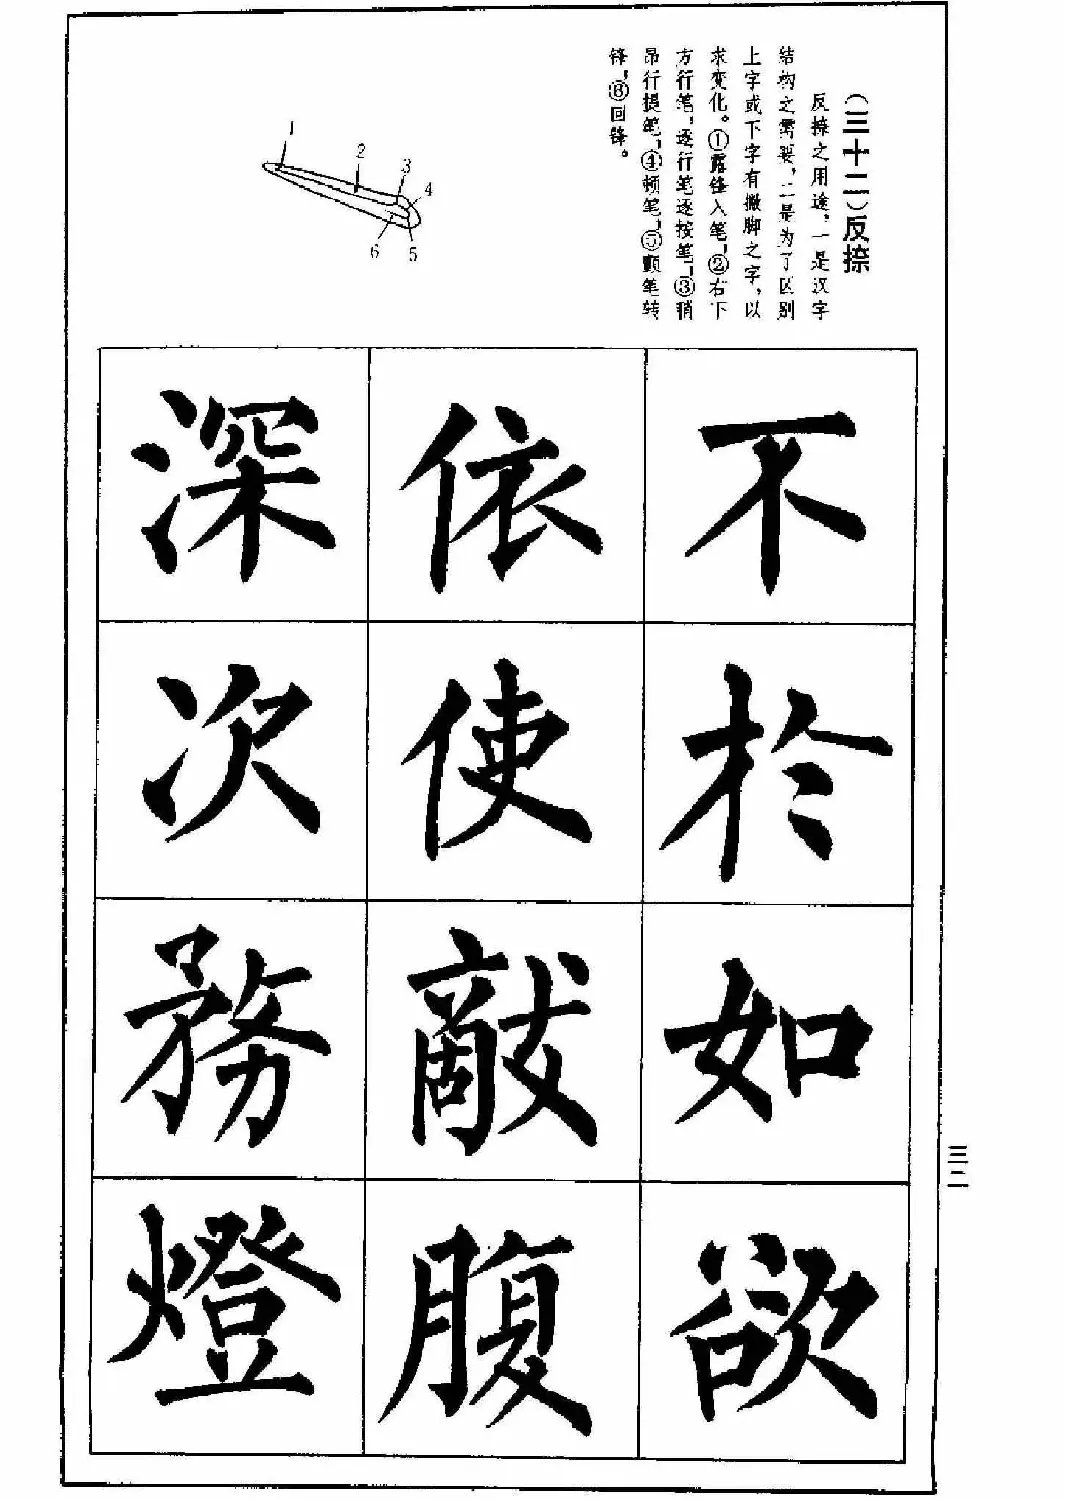 (三十二)反捺
反捺之用途,一是汉字
结构之需要,二是为了区别
上字或下字有撇脚之字,以
求变化。①露锋入笔,②右下
方行笔,逐行笔逐按笔,③稍
昂行提笔,④顿笔,⑤颤笔转
锋,⑥回锋。
1
2
3
4
5
6
不於如欲
依使敵腹
深次務燈
三二